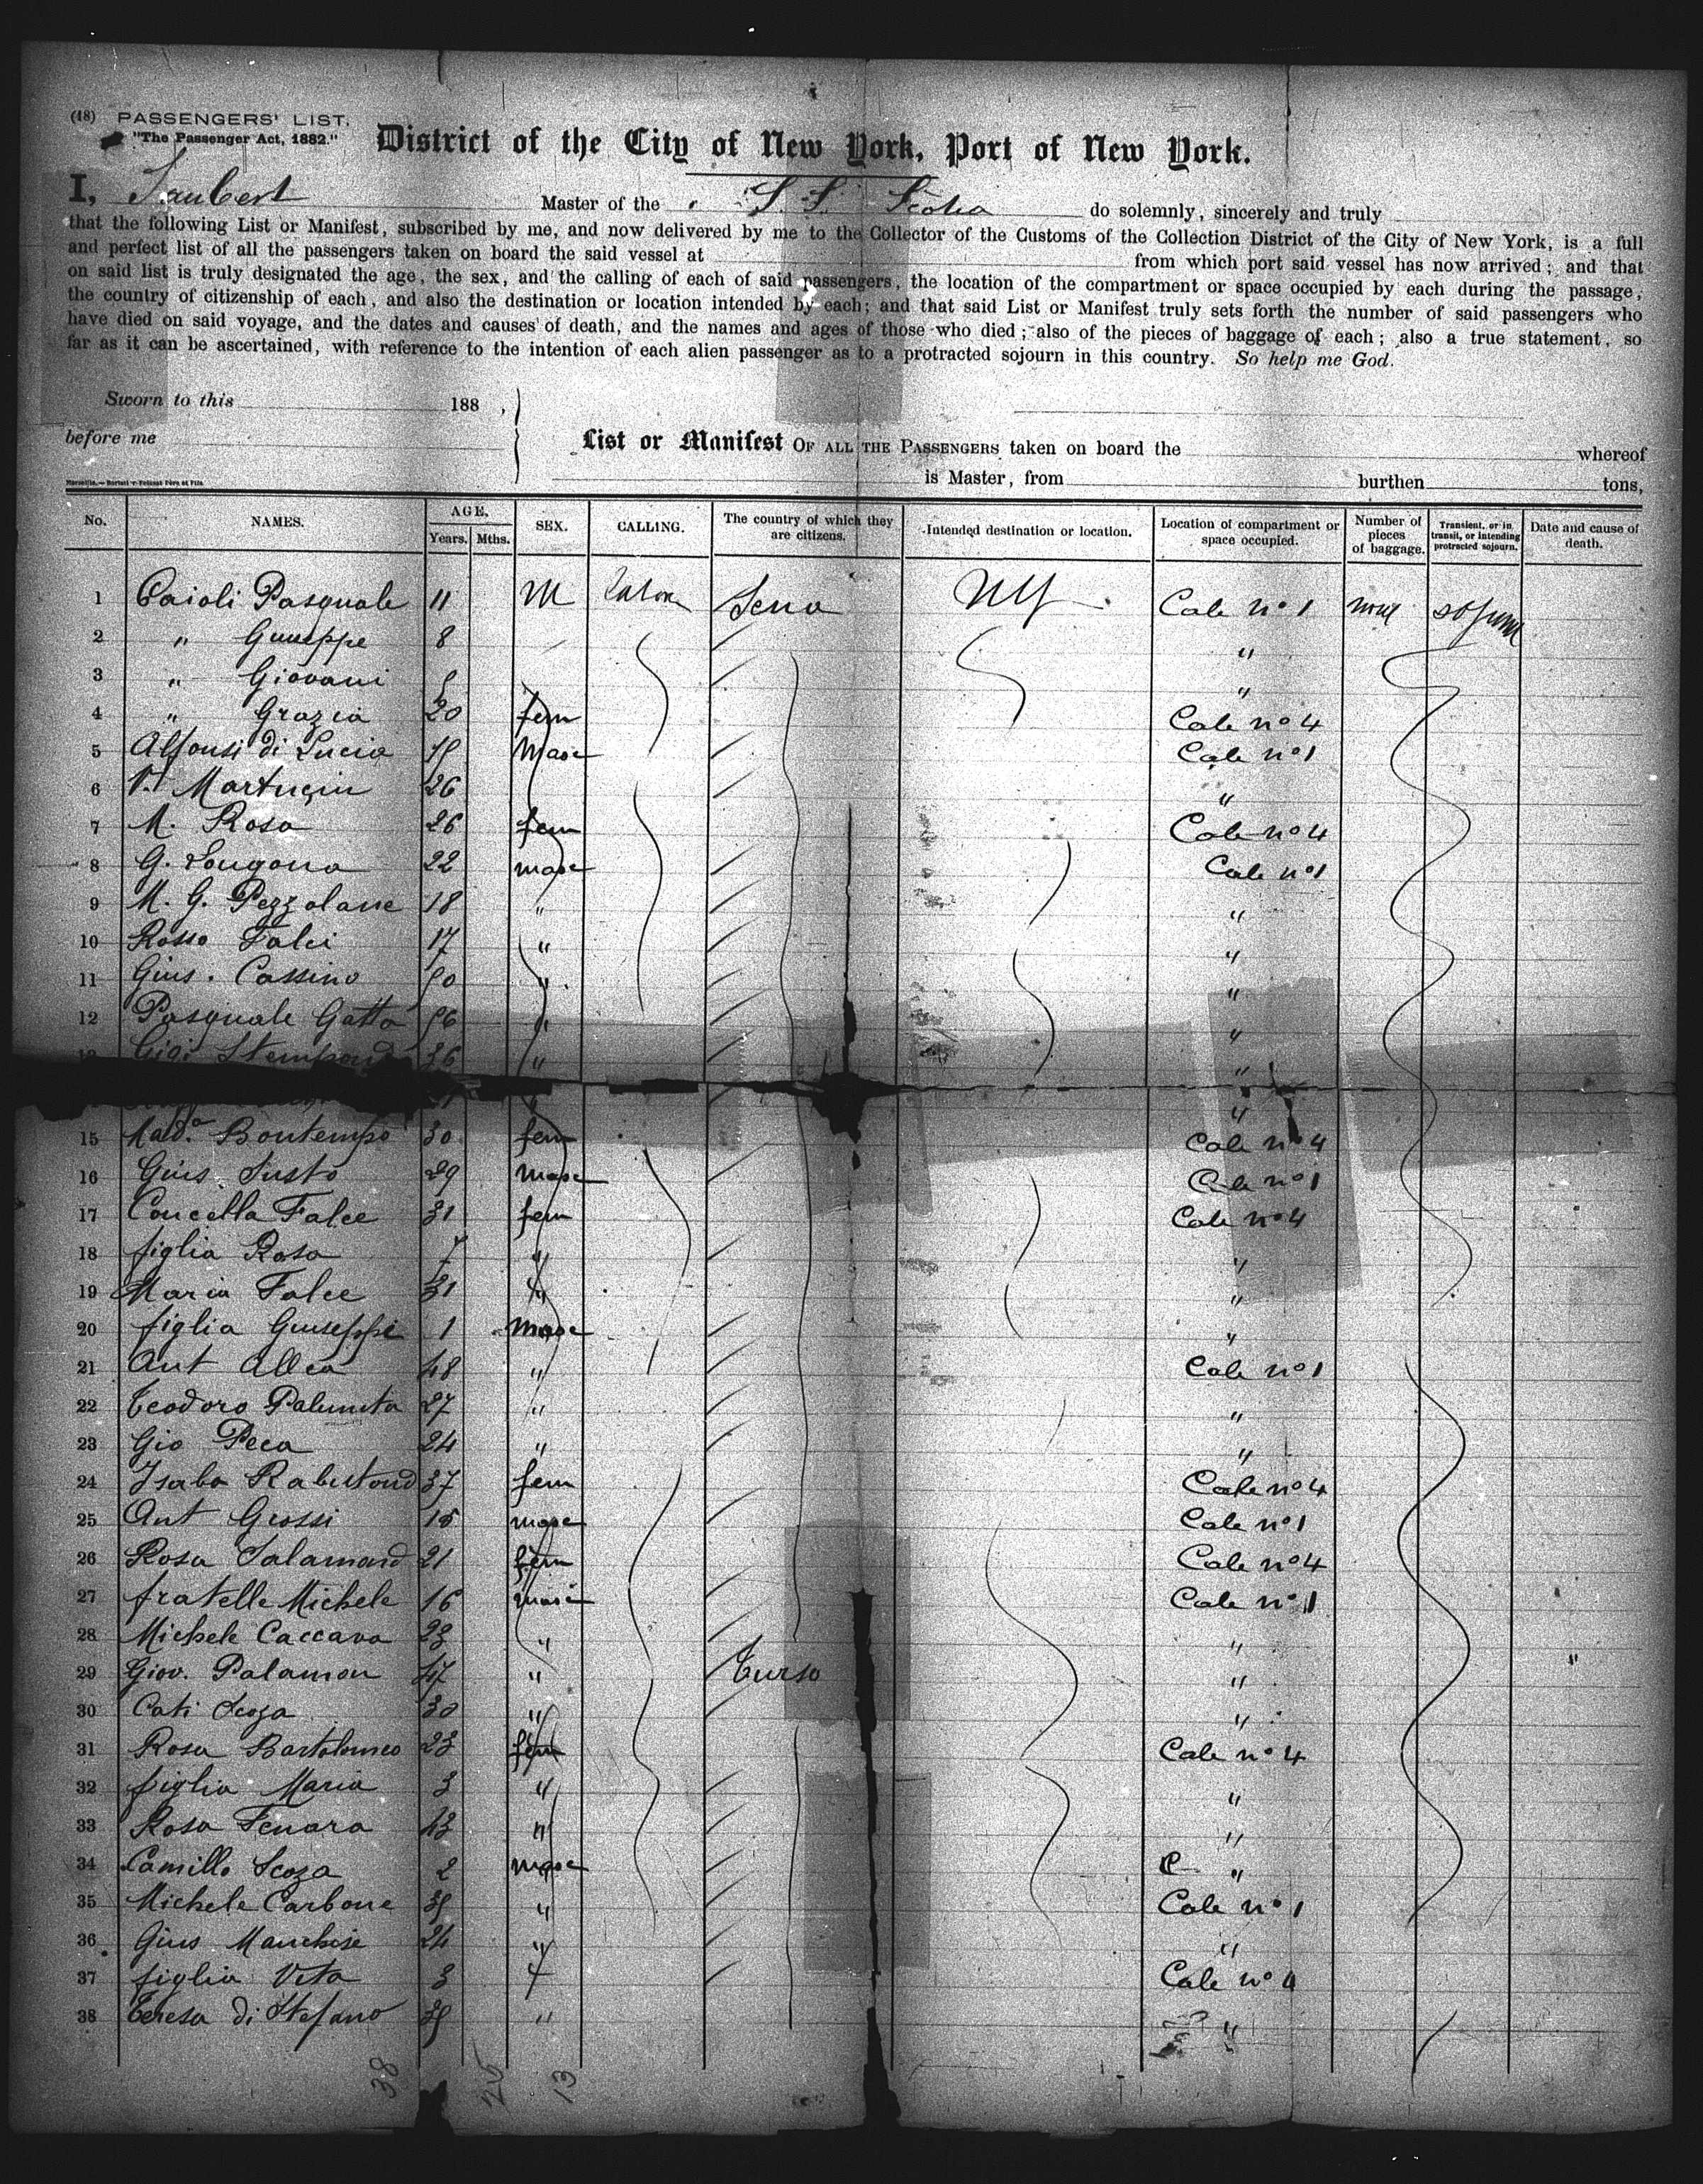 (18) PASSENGERS' LIST.
"The Passenger Act, 1882."
District of the City of New York, Port of New York.
I, Master of the S. S. Scotia do solemnly, sincerely and truly
that the following List or Manifest, subscribed by me, and now delivered by me to the Collector of the Customs of the Collection District of the City of New York, is a full
and perfect list of all the passengers taken on board the said vessel at from which port said vessel has now arrived; and that
on said list is truly designated the age, the sex, and the calling of each of said passengers, the location of the compartment or space occupied by each during the passage,
the country of citizenship of each, and also the destination or location intended by each; and that said List or Manifest truly sets forth the number of said passengers who
have died on said voyage, and the dates and causes of death, and the names and ages of those who died; also of the pieces of baggage of each; also a true statement, so
far as it can be ascertained, with reference to the intention of each alien passenger as to a protracted sojourn in this country. So help me God.
Sworn to this 188 ,
before me
List or Manifest OF ALL THE PASSENGERS taken on board the whereof
is Master, from burthen tons,
No. NAMES. AGE. Years. Mths. SEX. CALLING. The country of which they are citizens. Intended destination or location. Location of compartment or space occupied. Number of pieces of baggage. Transient, or in transit, or intending protracted sojourn. Date and cause of death.
1 Caioli Pasquale 11 M NY Cale n° 1
2 " Giuseppe 8 "
3 " Giovani "
4 " Grazia 20 fem Cale n° 4
5 Alfonsi di Lucia masc Cale n° 1
6 V. 26 "
7 M. Rosa 26 fem Cale n° 4
8 G. Longona 22 masc Cale n° 1
9 M. G. Pezzolane 18 " "
10 Rosso Falci 17 " "
11 Gius. Cassino " "
12 Pasquale Gatto " "
13 36 " "
" "
15 Mad.a Bontempo 30 fem Cale n° 4
16 Gius. Susto 29 masc Cale n° 1
17 Concella Falce 31 fem Cale n° 4
18 figlia Rosa 7 " "
19 Maria Falce 31 " "
20 figlia Giuseppi 1 masc "
21 Ant 48 " Cale n° 1
22 Teodoro 27 " "
23 Gio Peca 24 " "
24 Isabo 37 fem Cale n° 4
25 Ant Grossi 15 masc Cale n° 1
26 Rosa Salamond 21 fem Cale n° 4
27 fratelle Michele 16 masc Cale n° 1
28 Michele Caccava 23 " "
29 Giov. Palamon 47 " " "
30 Cati Scoza 30 " "
31 Rosa Bartolomeo 23 fem Cale n° 4
32 figlia Maria 3 " "
33 Rosa Fenara 43 " "
34 Camillo Scoza 2 masc "
35 Michele Carbone " Cale n° 1
36 Gius Manchise 24 " "
37 figlia Vita 3 " Cale n° 4
38 Teresa di Stefano " "
38 25 13